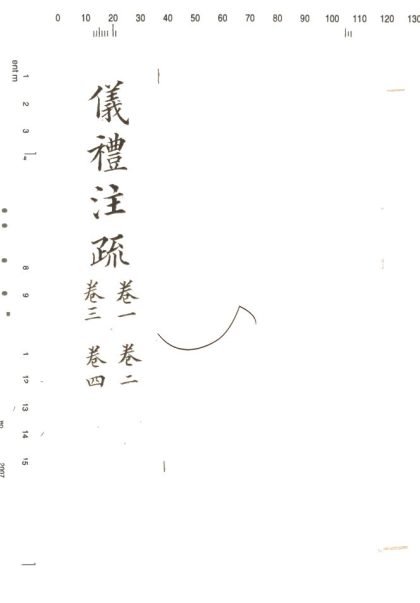 0 10 20 30 40 50 60 70 80 90 100 110 120 130
儀禮注疏
卷一 卷二
卷三 卷四
1
2
3
8
9
1
12
13
14
15
2007